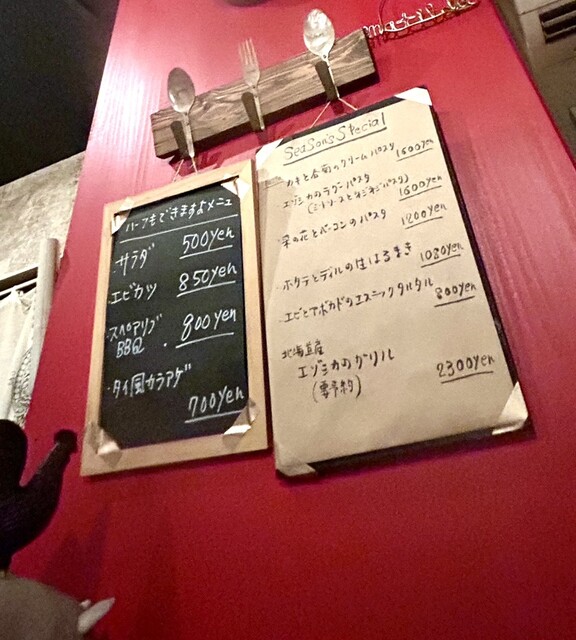 ハーフもできますよメニュー
サラダ 500yen
・エビカツ 850yen
・スペアリブ
BBQ ・ 800yen
・タイ風カラアゲ
700yen
Season's Special
カキと春菊のクリームパスタ 1600yen
エゾシカのラグーパスタ 1600yen
・菜の花とベーコンのパスタ 1200yen
・ホタテとディルの生はるまき 1080yen
・エビとアボカドのエスニックタルタル 800yen
北海道産
エゾシカのグリル 2300yen
(要予約)